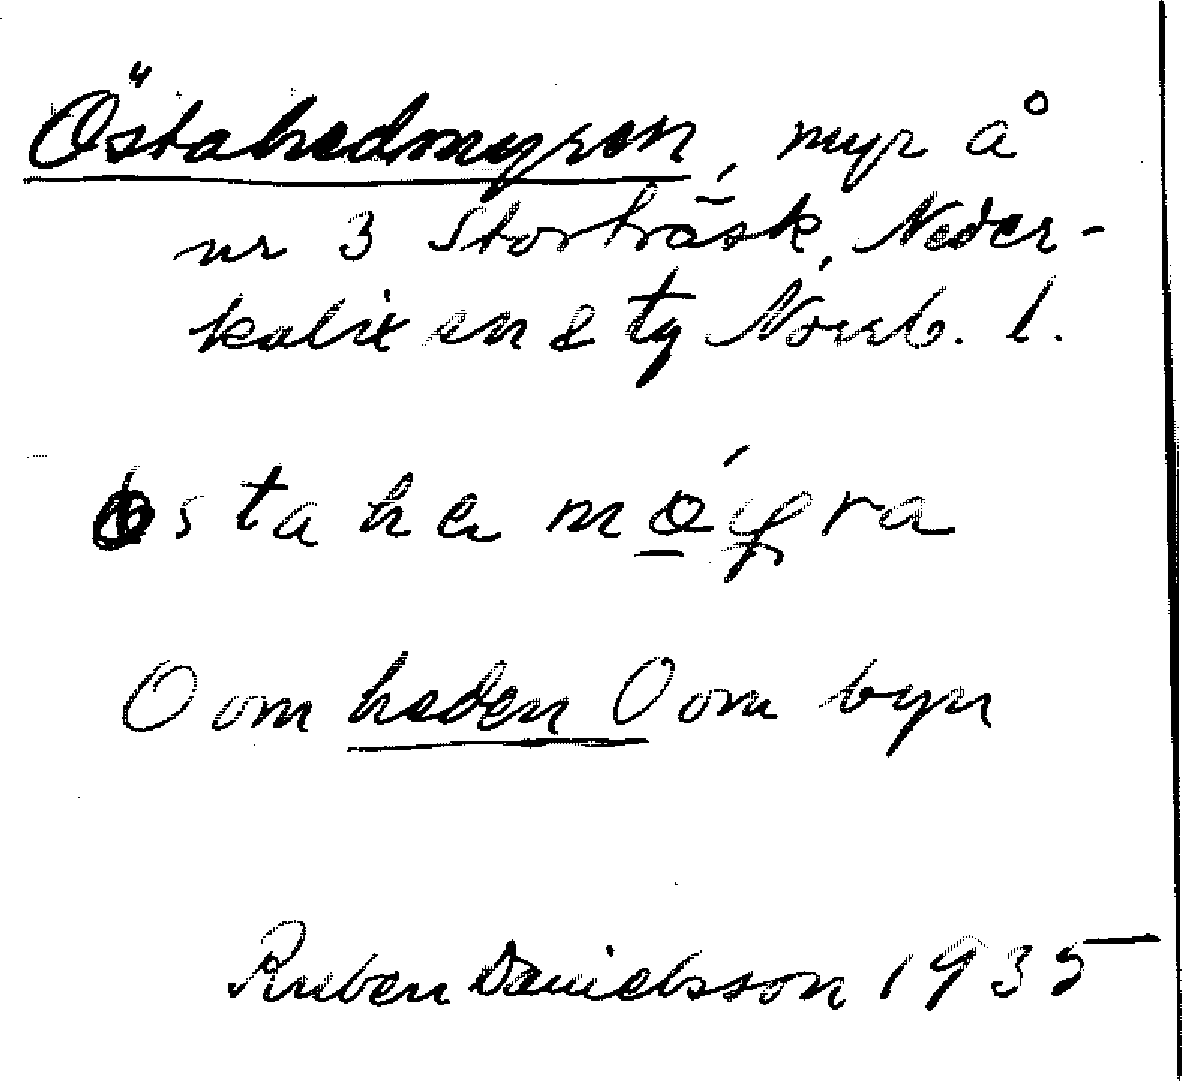 Östahedmyren, myr å
nr 3 Storträsk, Neder-
kalix sn & tg Norrb. l.
O om heden O om byn
Ruben Danielsson 1935